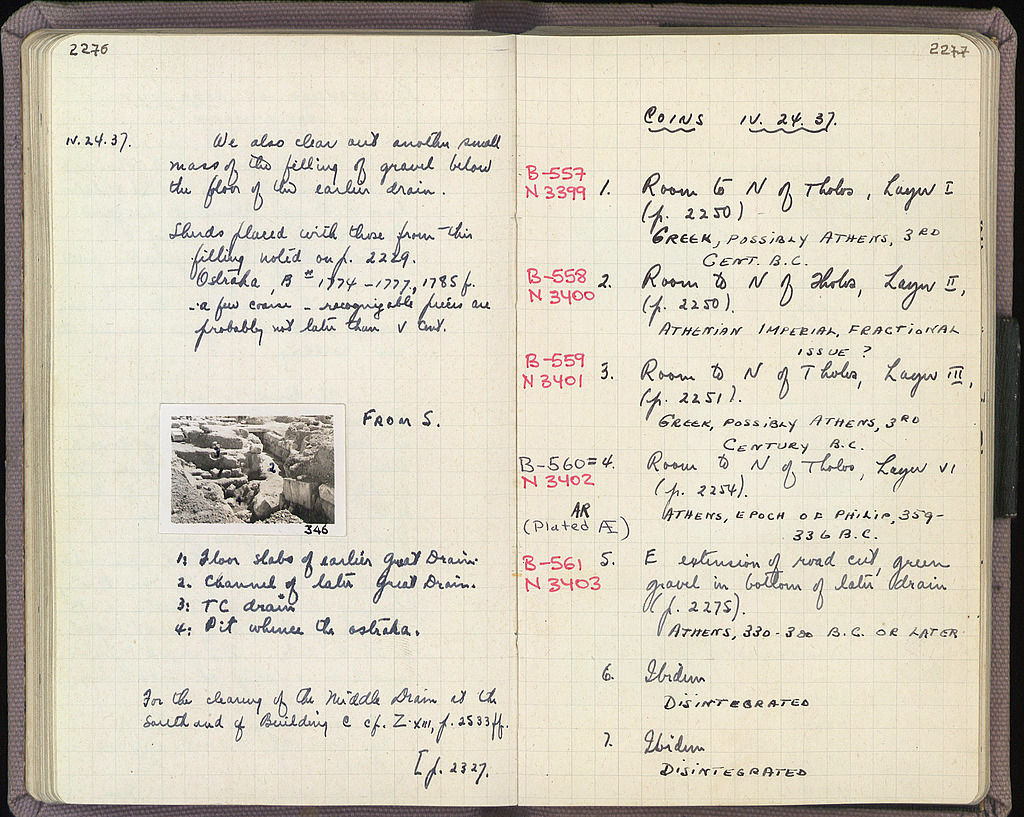 2276
IV. 24. 37.
We also clear out another small
mass of the filling of gravel below
the floor of the earlier drain.
Sherds placed with those from this
filling noted on p. 2229.
Ostraka, B# 1774-1777, 1785 f.
- a few coarse - recognizable pieces are
probably not later than V cent.
FROM S.
3
2
346
1: Floor slabs of earlier Great Drain.
2. Channel of later Great Drain.
3: TC drain
4: Pit whence the ostraka.
For the clearing of the Middle Drain at the
South end of Building C cf. Z-XIII, p. 2533 ff.
[p. 2327.
2277
COINS IV. 24. 37.
B-557
N 3399
1. Room to N of Tholos, Layer I
(p. 2250)
GREEK, POSSIBLY ATHENS, 3RD
CENT. B.C.
B-558
N 3400
2. Room to N of Tholos, Layer II,
(p. 2250).
ATHENIAN IMPERIAL, FRACTIONAL
ISSUE ?
B-559
N 3401
3. Room to N of Tholos, Layer III,
(p. 2251).
GREEK, POSSIBLY ATHENS, 3RD
CENTURY B.C.
B-560=4.
N 3402
Room to N of Tholos, Layer VI
(p. 2254).
AR
(Plated Æ)
ATHENS, EPOCH OF PHILIP, 359-
336 B.C.
B-561
N 3403
5. E extension of road cut, green
gravel in bottom of later drain
(p. 2275).
ATHENS, 330-300 B.C. OR LATER
6. Ibidem
DISINTEGRATED
7. Ibidem
DISINTEGRATED